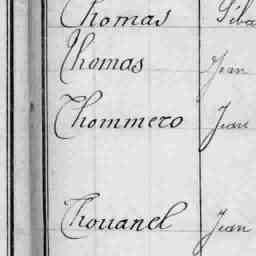 Thomas
Thomas Jean
Thommero Jean
Thouanel Jean